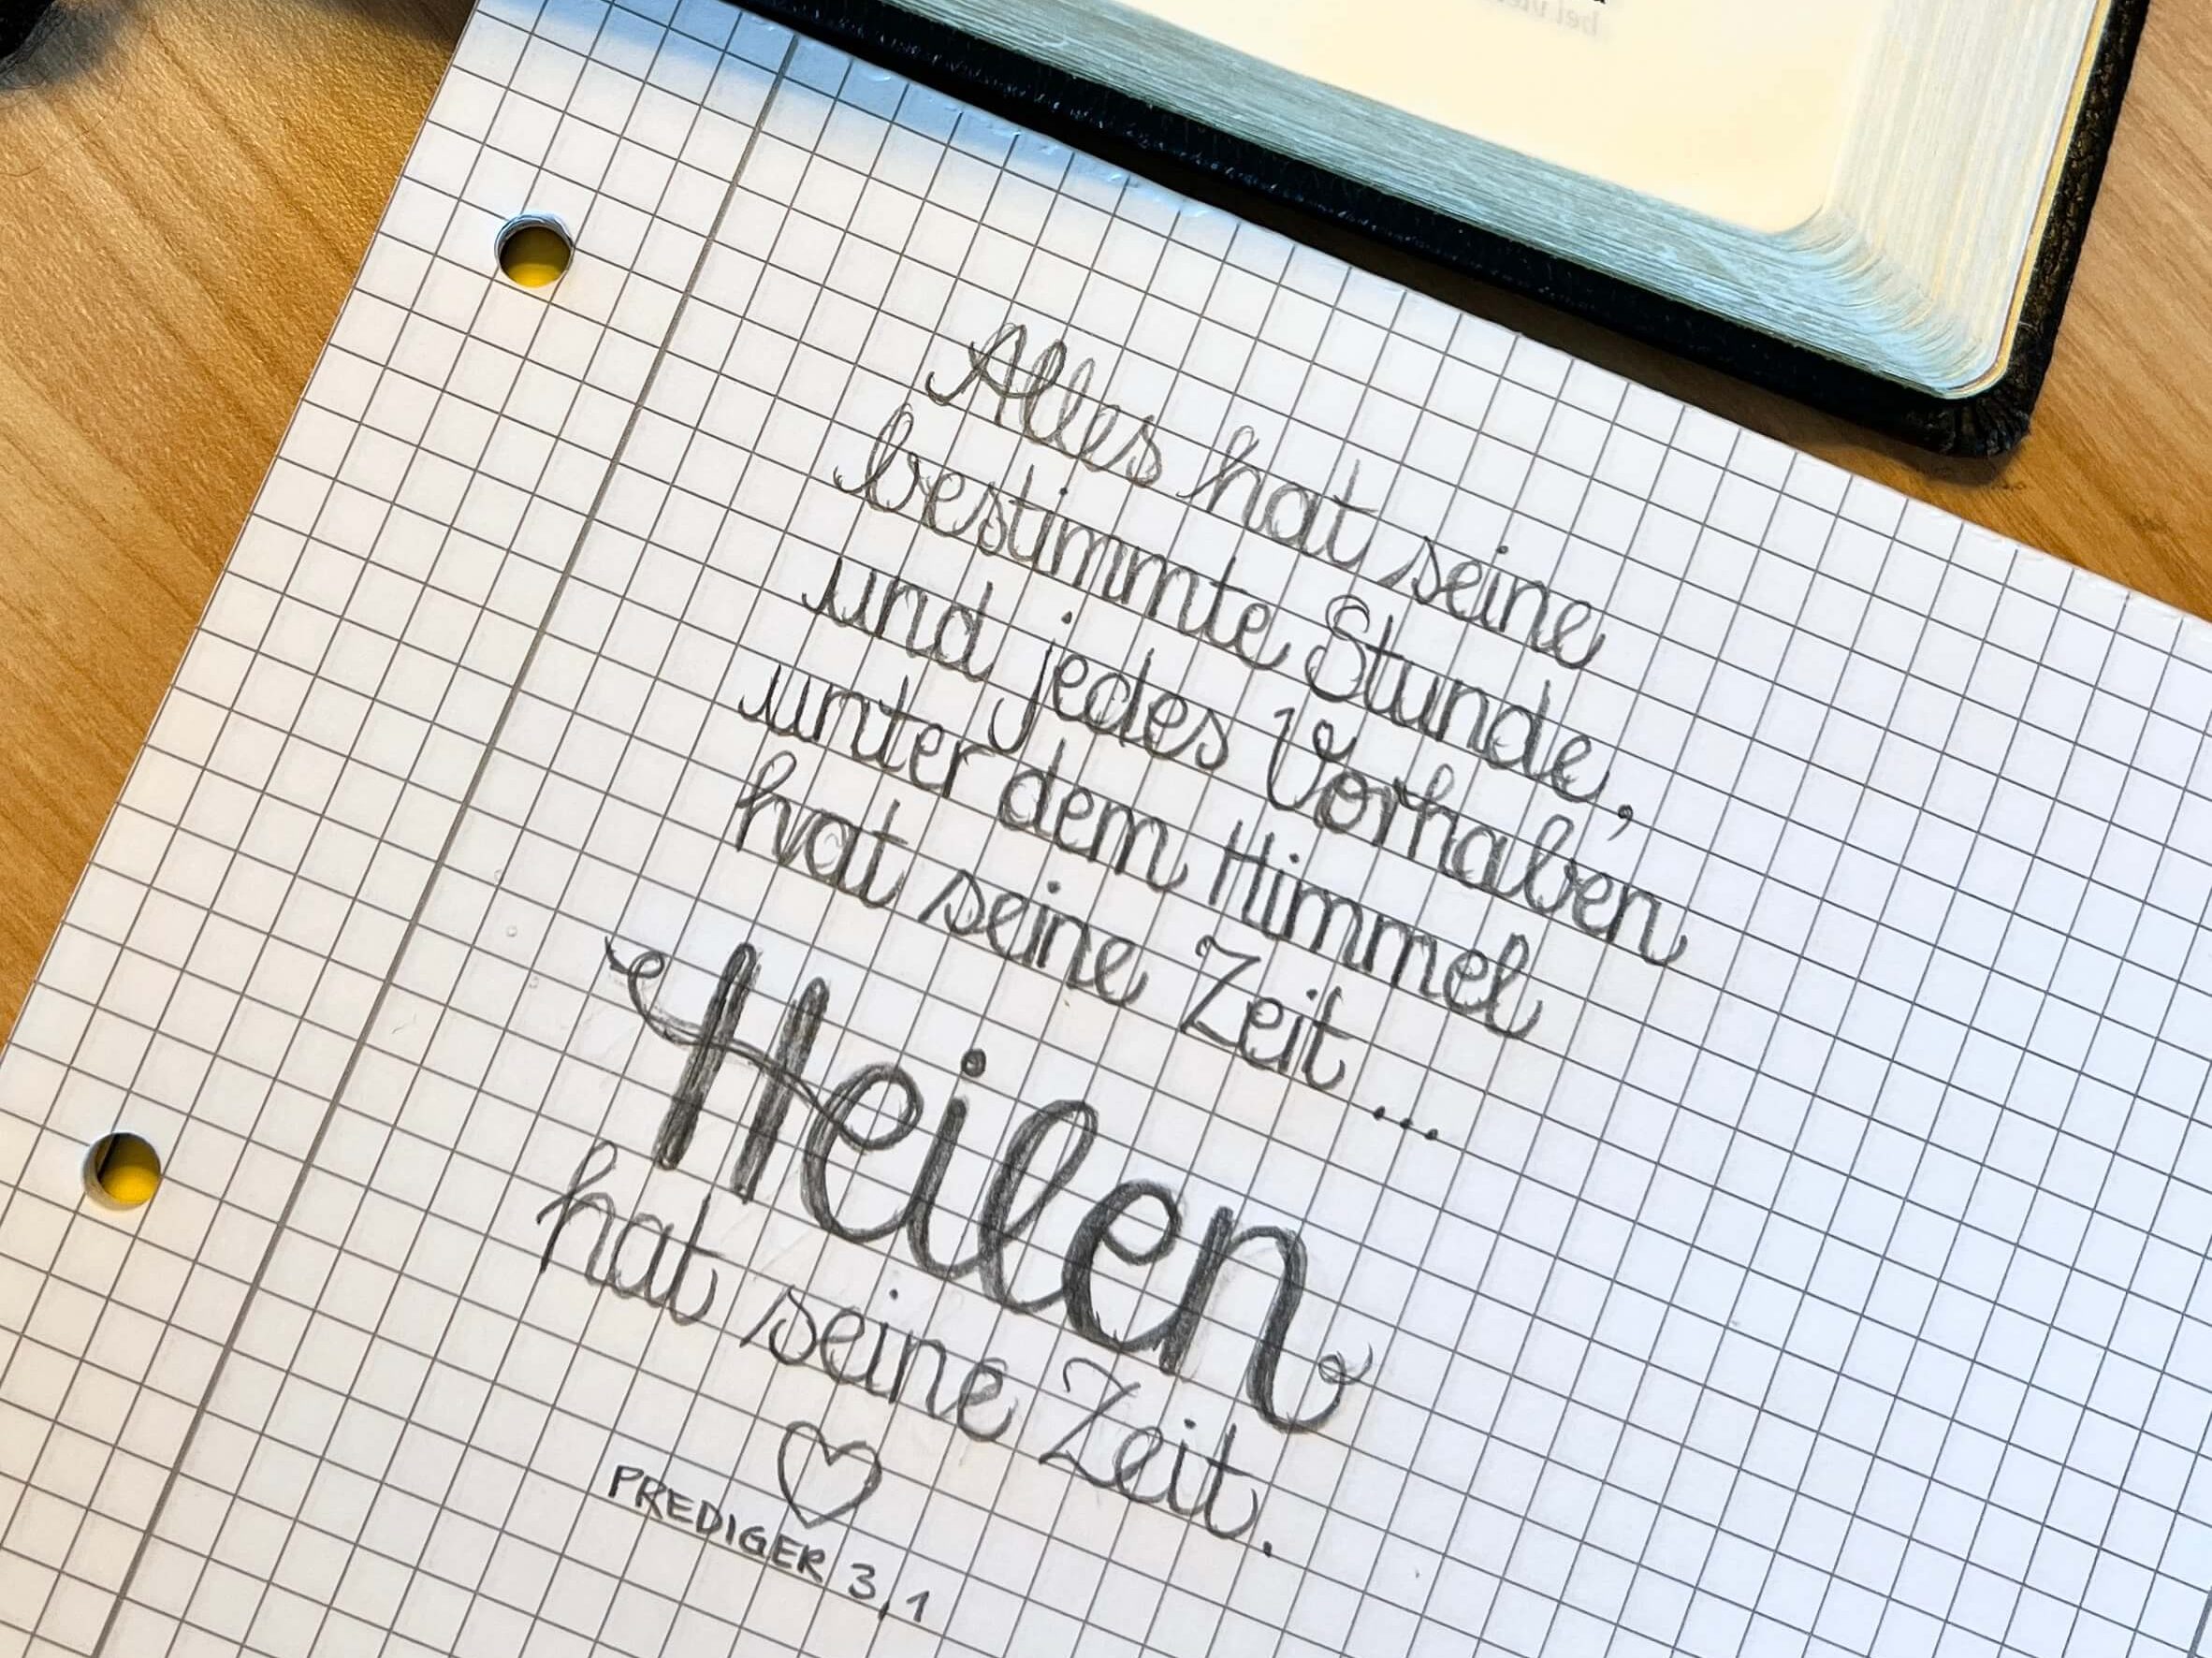 Alles hat seine
bestimmte Stunde,
und jedes Vorhaben
unter dem Himmel
hat seine Zeit...
Heilen
hat seine Zeit.
PREDIGER 3,1